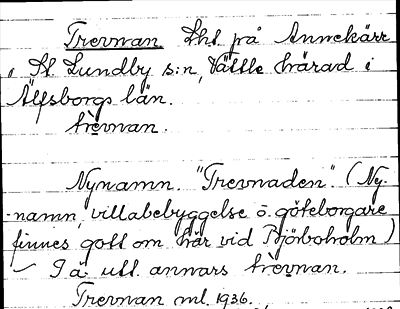 Trevnan. Lht på Annekärr
i St. Lundby s:n, Vättle härad i
Älfsborgs län.
trèvnan.
Nynamn. "Trevnaden". (Ny-
namn, villabebyggelse o. göteborgare
finnes gott om här vid Björboholm)
I ä utt. annars trèvnan.
Trevnan ml. 1936.